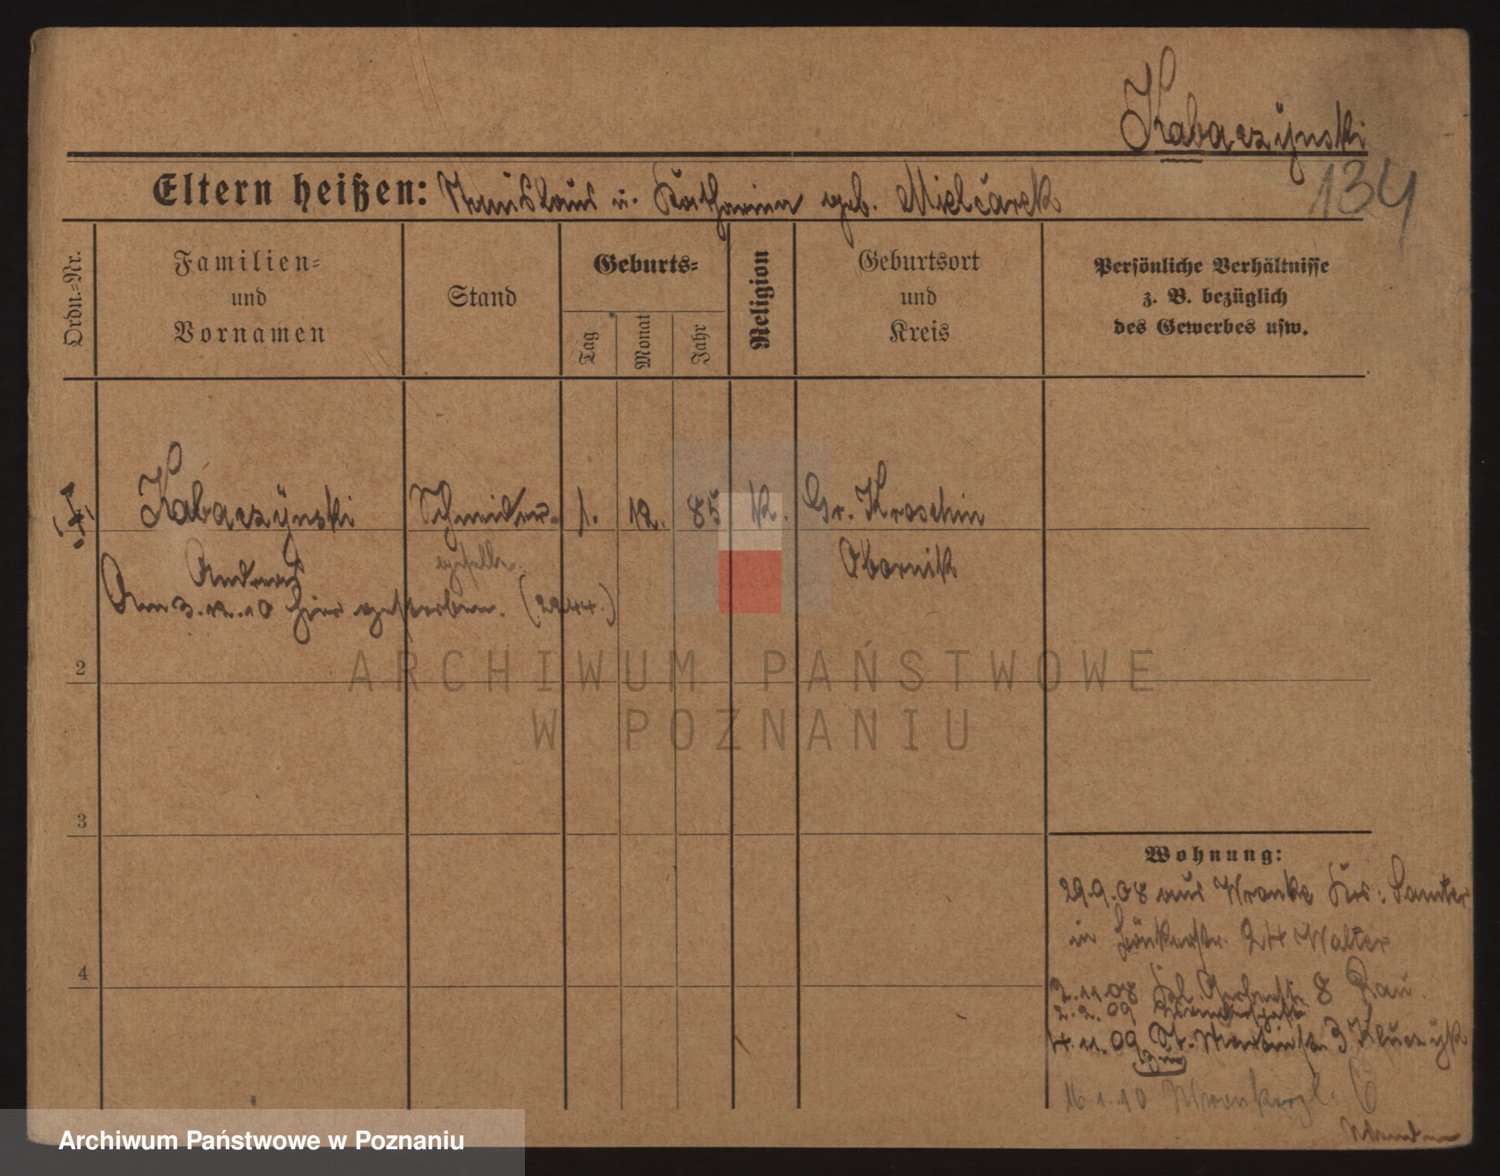 Kabaczynski
134
Eltern heißen: u. Katharina geb. Mielcarek
Ordn.-Nr.
Familien-
und
Vornamen
Stand
Geburts-
Tag
Monat
Jahr
Religion
Geburtsort
und
Kreis
Persönliche Verhältnisse
z. B. bezüglich
des Gewerbes usw.
Kabaczÿnski Schneider- 1. 12. 85 K. Gr. Kroschin
Andreas geselle Obornik
Am 3.12.10 hier gestorben. (2244.)
2
3
4
Wohnung:
29.9.08 aus Wronke Krs: Samter
in 24 Walter
2.11.08 8 Rau
2.2.09
4.11.09 St. Martinstr. 3
16.1.10 6
ARCHIWUM PAŃSTWOWE
W POZNANIU
Archiwum Państwowe w Poznaniu